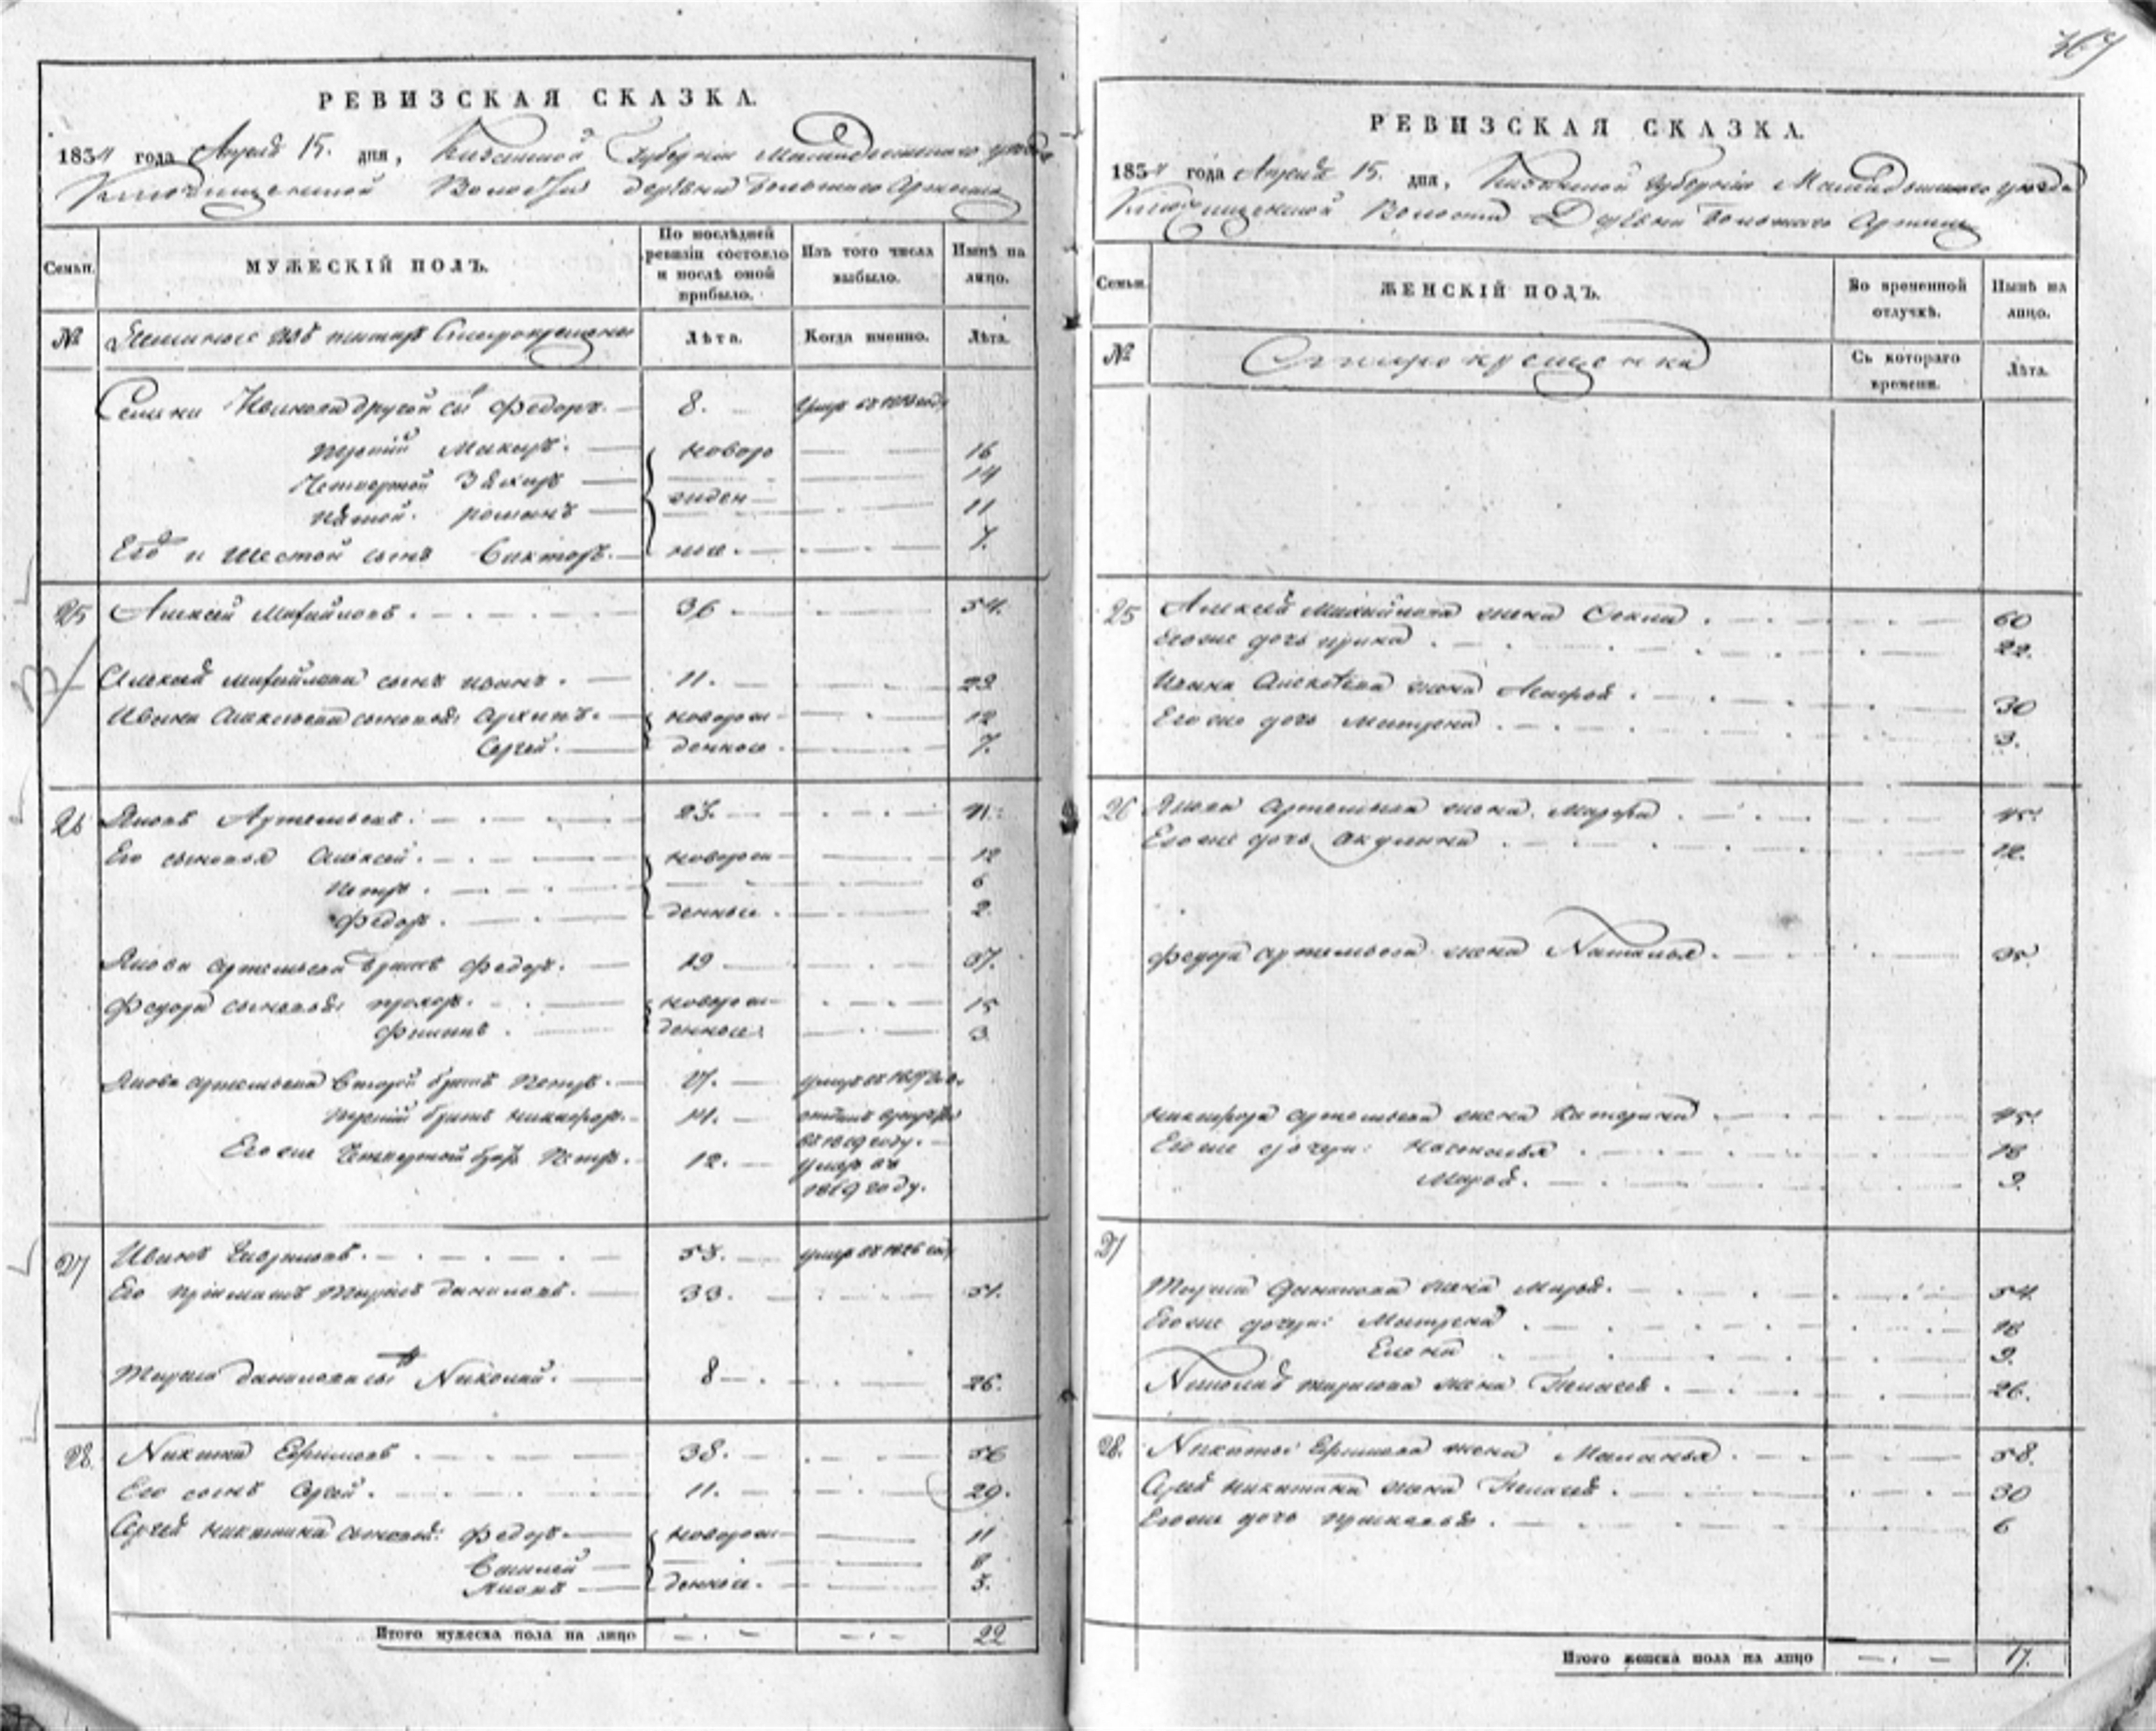 РЕВИЗСКАЯ СКАЗКА.
1854 года Апреля 15. дня, Казанской Губернии Мамадышского уезда
Ключищенской Волости деревни Большого Арташа
Семьи. МУЖЕСКІЙ ПОЛЪ. По послѣдней ревизіи состояло и послѣ оной прибыло. Изъ того числа выбыло. Нынѣ на лицо.
№ изъ татаръ Старокрещены Лѣта. Когда именно. Лѣта.
другой сы Федоръ. 8.
третій Макаръ. новоро 16
Четвертой Захаръ 14
пятой. романъ жден 11
Его и шестой сынъ Викторъ. ные. 7.
25 Алексей Михайловъ. 36 54.
Алексея михайлова сынъ иванъ. 11. 29
Ивана Алексеева сыновья: Архипъ. новорож 12
Сергей. денные 7.
26 Яковъ Артемьевъ. 23. 41.
Его сыновья Алексей. новорож 12
Петръ. 6
Федоръ. денные. 2.
Якова Артемьева братъ Федоръ. 19 37.
Федора сыновья: прохоръ. новорож 15
Филипъ. денные. 3
Якова Артемьева второй братъ Петръ. 17.
третій братъ никифоръ. 14. отданъ в рекруты
Его же Четвертой братъ Петръ. 12. умеръ въ
году.
27 Иванъ Гавриловъ. 55.
Его пріемышъ Тарасъ даниловъ. 33. 51.
Тараса данилова сы Николай. 8 26.
28. Никита Ефимовъ 38. 56
Его сынъ Сергей. 11. 29.
Сергея никитина сыновья: Федоръ. новорож 11
Василей 8
Яковъ денные. 3.
Итого мужеска пола на лицо 22
РЕВИЗСКАЯ СКАЗКА.
1854 года Апреля 15. дня, Казанской Губерніи Мамадышского уезда
Ключищенской Волости Деревни Большаго Арташа
Семьи. ЖЕНСКІЙ ПОЛЪ. Во временной отлучкѣ. Нынѣ на лицо.
№ Старокрещенка Съ котораго времени. Лѣта.
25 Алексея Михайлова жена 60
Его же дочь ирина 22.
Ивана Алексеева жена 30
Его же дочь Матрена 3.
26 Якова Артемьева жена Марфа 45.
Его же дочь Акулина 12.
Федора Артемьева жена Наталья. 35
Никифора Артемьева жена Катерина 45.
Его же дочери: Настасья 18
Марья. 9.
27
Тараса Данилова жена Марья. 54
Его же дочери: Матрена 18
Елена 9.
Николая тарасова жена Пелагея. 26.
28. Никиты Ефимова жена Маланья 58.
Сергея никитина жена Пелагея. 30
Его же дочь прасковья. 6
Итого женска пола на лицо 17.